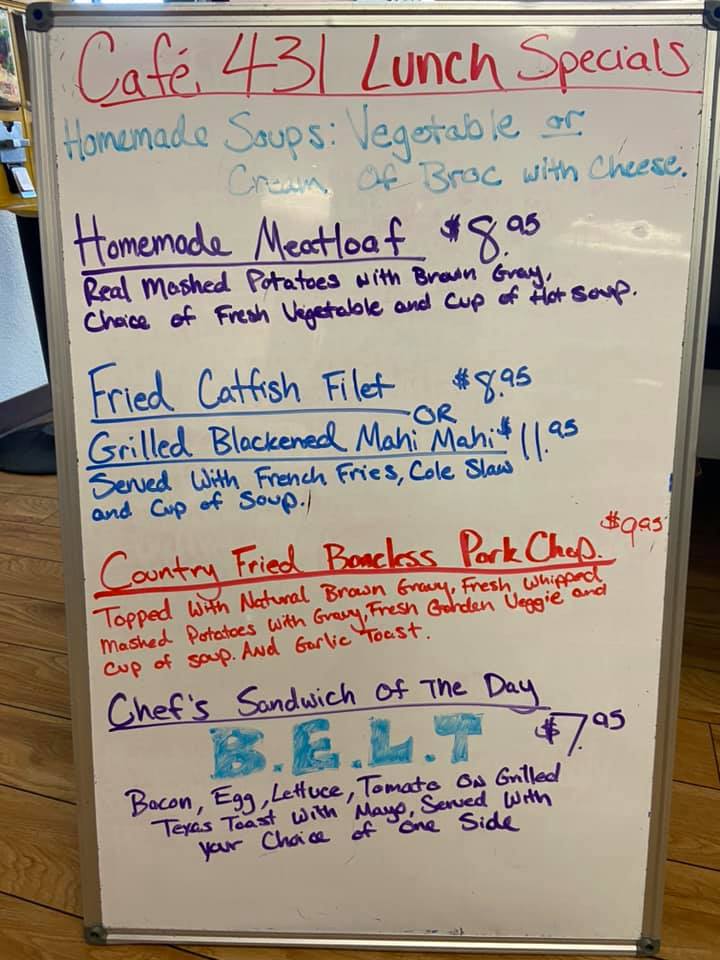 Café 431 Lunch Specials
Homemade Soups: Vegetable or
Cream Of Broc with Cheese.
Homemade Meatloaf $8.95
Real Mashed Potatoes with Brown Gravy,
Choice of Fresh Vegetable and Cup of Hot Soup.
Fried Catfish Filet $8.95
OR
Grilled Blackened Mahi Mahi $11.95
Served With French Fries, Cole Slaw
and Cup of Soup.
$9.95
Country Fried Boneless Pork Chop.
Topped With Natural Brown Gravy, Fresh Whipped
Mashed Potatoes with Gravy, Fresh Garden Veggie and
Cup of soup. And Garlic Toast.
Chef's Sandwich Of The Day
B.E.L.T $7.95
Bacon, Egg, Lettuce, Tomato On Grilled
Texas Toast With Mayo, Served With
your Choice of One Side